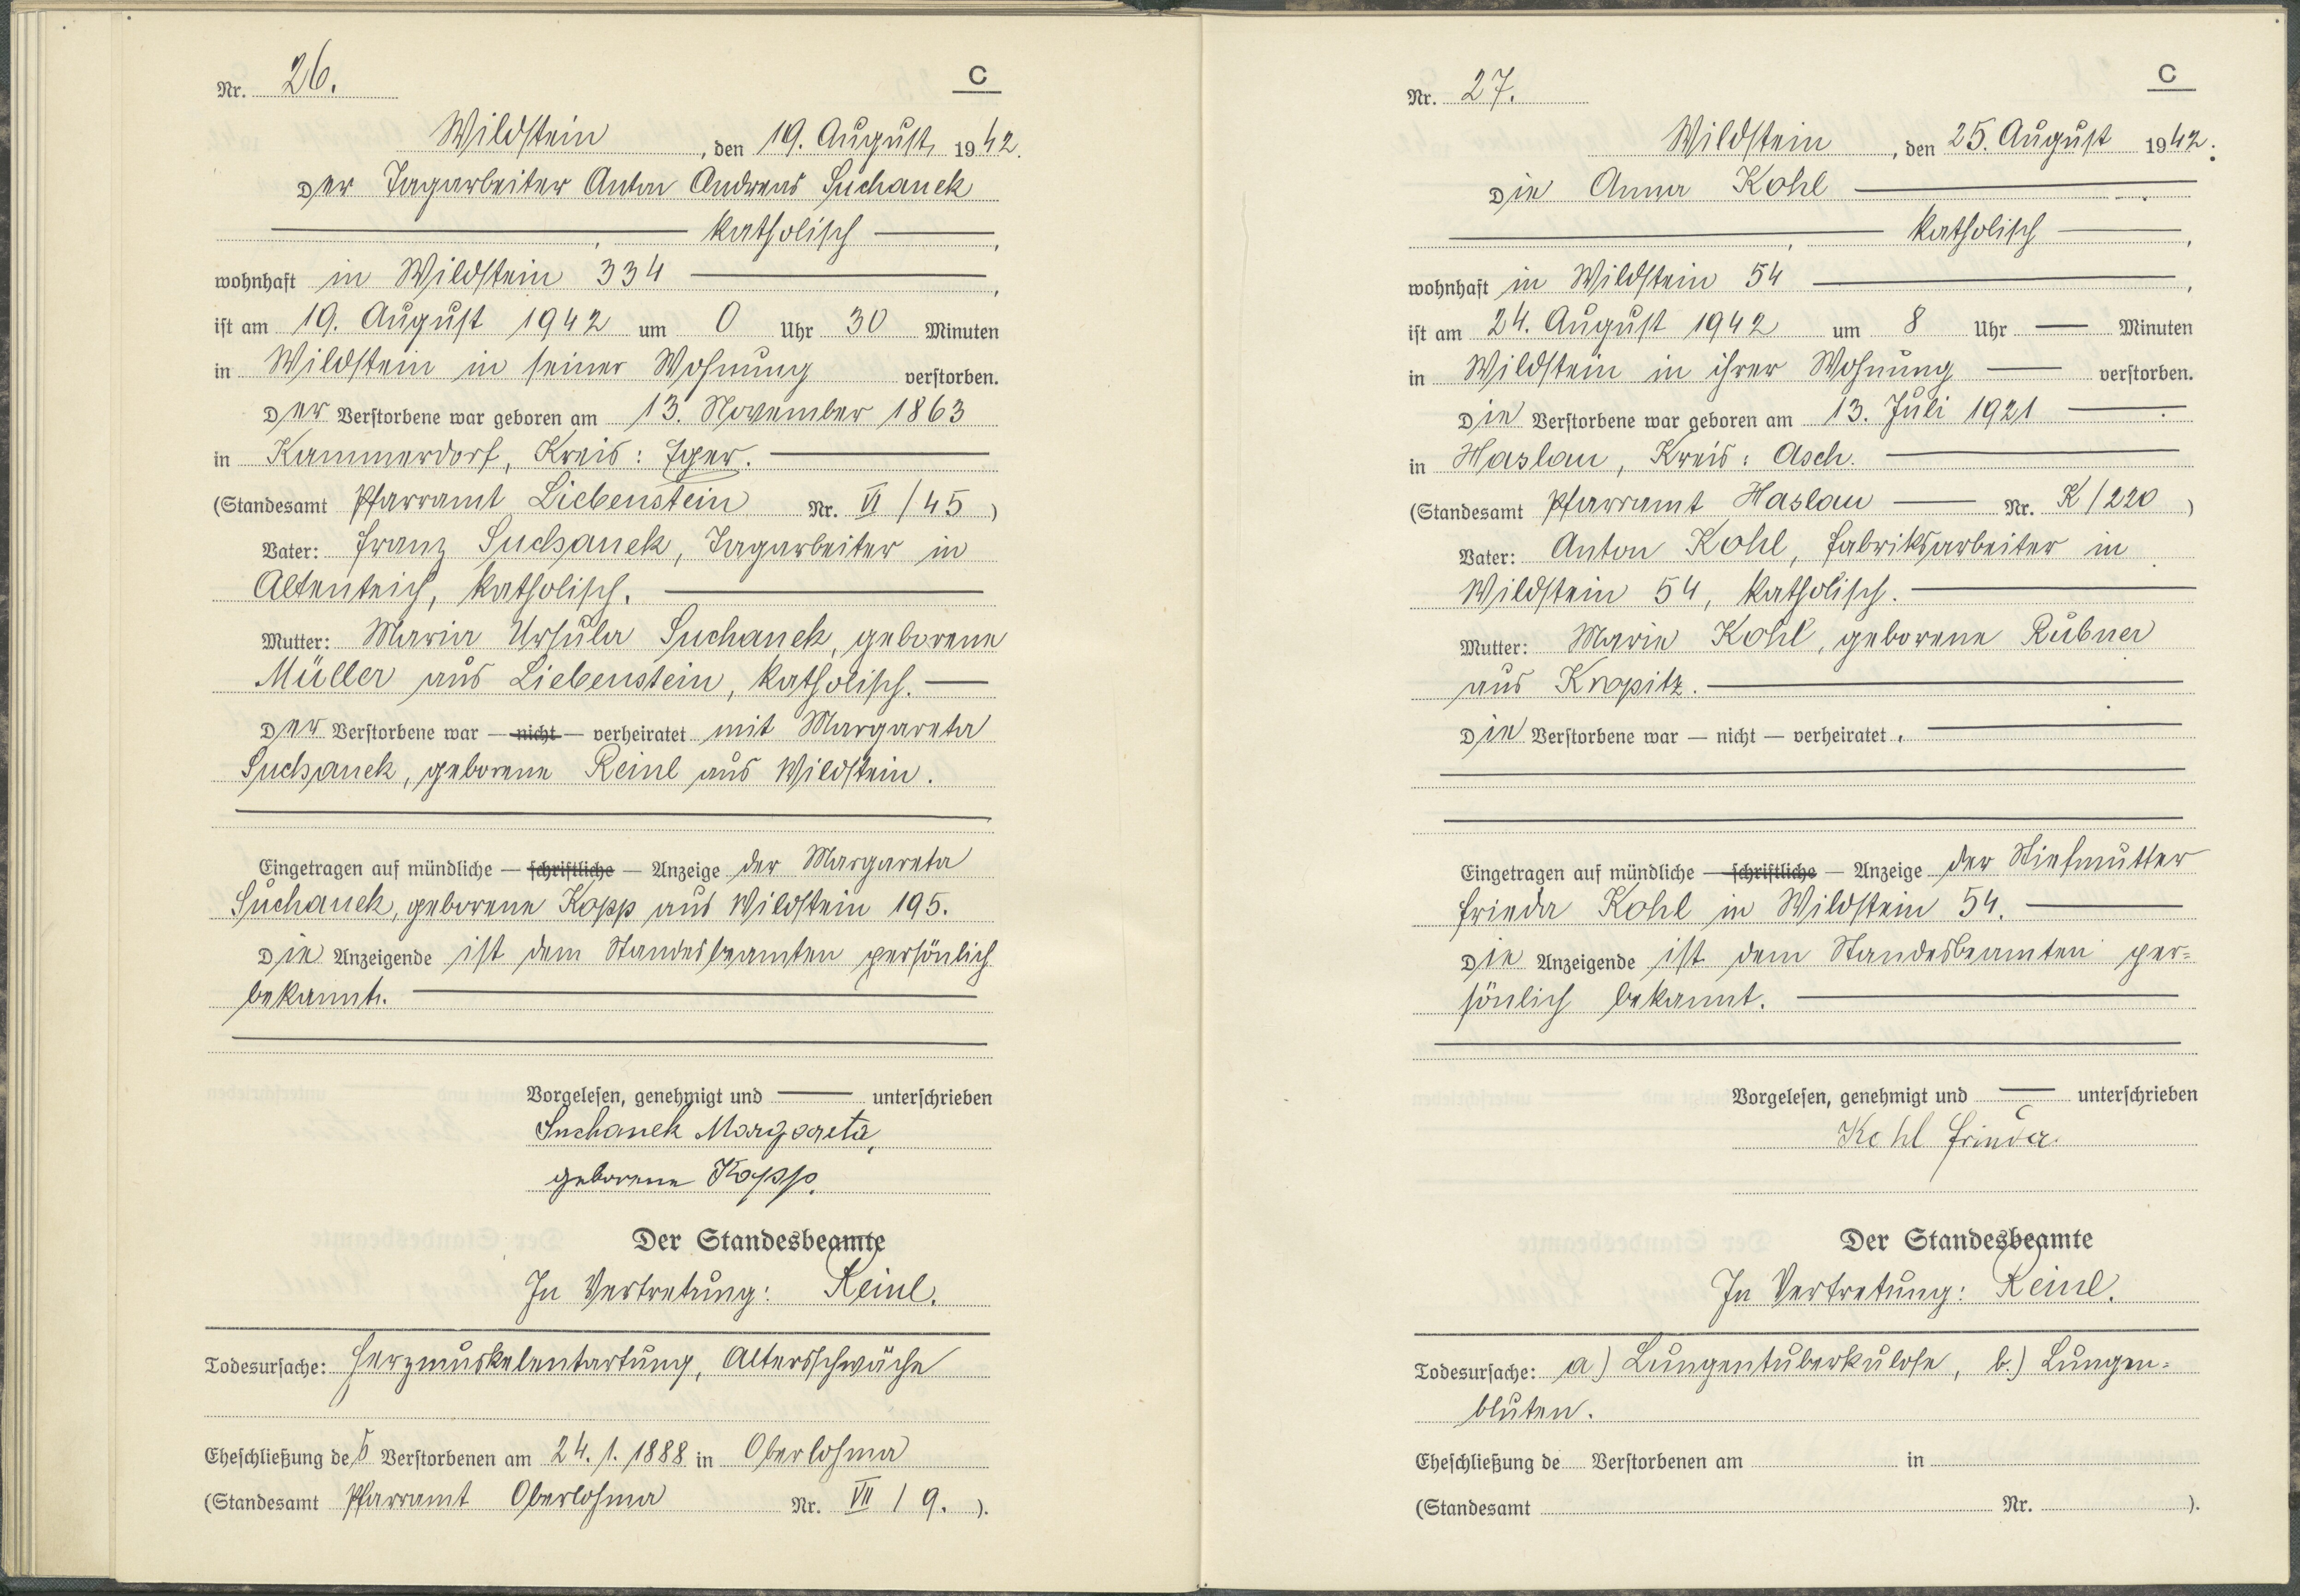 Nr. 26.
C
Wildstein, den 19. August 1942.
Der Tagarbeiter Anton Andreas Suchanek
—, — katholisch —,
wohnhaft in Wildstein 334 —,
ist am 19. August 1942 um 0 Uhr 30 Minuten
in Wildstein in seiner Wohnung verstorben.
Der Verstorbene war geboren am 13. November 1863
in Kammerdorf, Kreis: Eger. —
(Standesamt Pfarramt Liebenstein Nr. VI / 45)
Vater: Franz Suchanek, Tagarbeiter in
Altenteich, katholisch. —
Mutter: Maria Ursula Suchanek, geborene
Müller aus Liebenstein, katholisch. —
Der Verstorbene war — nicht — verheiratet mit Margareta
Suchanek, geborene Reinl aus Wildstein.
Eingetragen auf mündliche — schriftliche — Anzeige der Margareta
Suchanek, geborene Kopp aus Wildstein 195.
Die Anzeigende ist dem Standesbeamten persönlich
bekannt. —
Vorgelesen, genehmigt und — unterschrieben
Suchanek Margareta,
geborene Kopp.
Der Standesbeamte
In Vertretung: Reinl.
Todesursache: Herzmuskelentartung, Altersschwäche
Eheschließung des Verstorbenen am 24. 1. 1888 in Oberlohma
(Standesamt Pfarramt Oberlohma Nr. VII / 9. ).
Nr. 27.
C
Wildstein, den 25. August 1942.
Die Anna Kohl —
—, — katholisch —,
wohnhaft in Wildstein 54 —,
ist am 24. August 1942 um 8 Uhr — Minuten
in Wildstein in ihrer Wohnung — verstorben.
Die Verstorbene war geboren am 13. Juli 1921 —
in Haslau, Kreis: Asch. —
(Standesamt Pfarramt Haslau — Nr. K / 220 )
Vater: Anton Kohl, Fabriksarbeiter in
Wildstein 54, katholisch. —
Mutter: Marie Kohl, geborene Rubner
aus Kropitz. —
Die Verstorbene war — nicht — verheiratet. —
Eingetragen auf mündliche — schriftliche — Anzeige der Stiefmutter
Frieda Kohl in Wildstein 54. —
Die Anzeigende ist dem Standesbeamten per=
sönlich bekannt. —
Vorgelesen, genehmigt und — unterschrieben
Kohl Frieda
Der Standesbeamte
In Vertretung: Reinl.
Todesursache: a) Lungentuberkulose, b.) Lungen=
bluten.
Eheschließung de Verstorbenen am in
(Standesamt Nr. ).